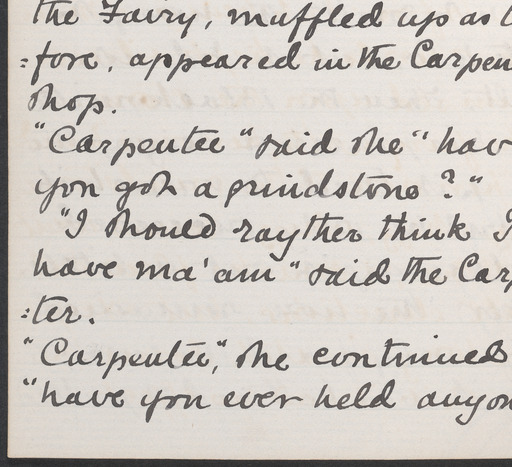 the Fairy, muffled up as b
:fore, appeared in the Carpen
shop.
"Carpenter" said she "hav
you goh a grindstone?"
"I should rayther think I
have ma'am" said the Carp
:ter.
"Carpenter," she continued
"have you ever held anyon